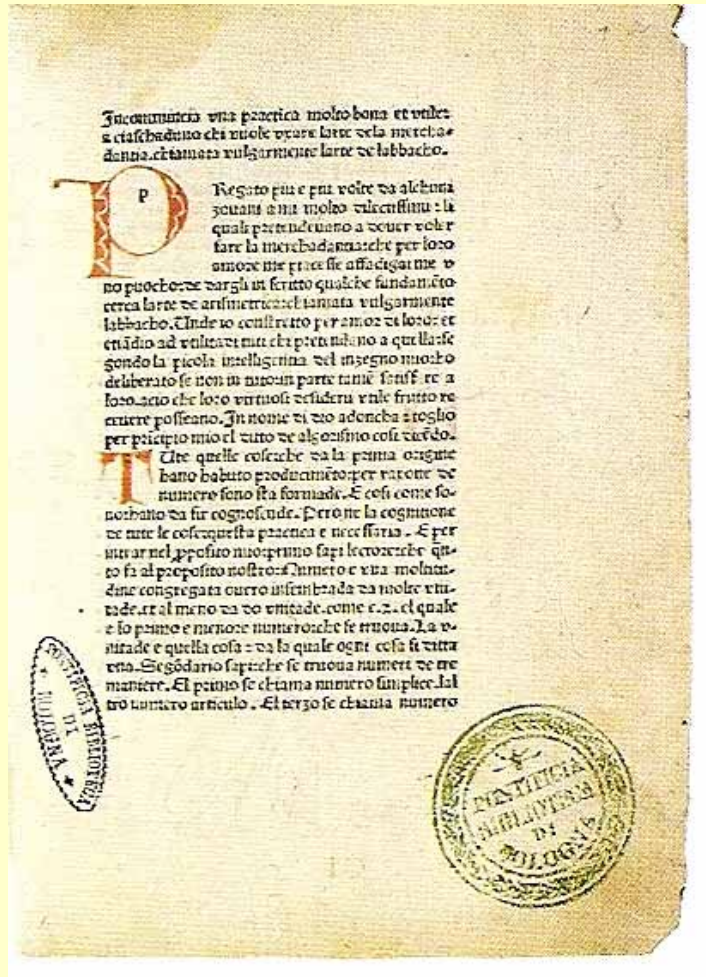 Incommincia vna practica molto bona et vtilez
a ciaschaduno chi vuole vxare larte dela mercha-
dantia. chiamata vulgarmente larte de labbacho.
P
Regato piu e piu volte da alchuni
zouani a mi molto dilectissimi: li
quali pretendeuano a douer voler
fare la merchadantia: che per loro
amore me piacesse affadigarme v
no puocho: de dargli in scritto qualche fundamēto
cerca larte de arismetrica: chiamata vulgarmente
labbacho. Unde io constretto per amor di loro: et
etiādio ad vtilita di tuti chi pretendano a quella: se
gondo la picola intelligentia del inzegno mio: ho
deliberato se non in tuto: in parte tamē satisfare a
loro. acio che loro virtuosi desiderii vtile frutto re
ceuere posseano. In nome di dio adoncha: toglio
per principio mio el dito de algorismo cosi dicēdo.
T
Ute quelle cose: che da la prima origine
hano habuto producimēto: per raxone de
numero sono sta formade. E cosi come so-
no: hano da fir cognosude. Pero ne la cognitione
de tute le cose: questa practica e necessaria. E per
intrar nel pposito mio: primo sapi lectore: che qū-
to fa al proposito nostro: Numero e vna moltitu-
dine congregata ouero insembrada da molte vni-
tade. et al meno da do vnitade. come e .2. el quale
e lo primo e menore numero: che se truoua. La v-
nitade e quella cosa: da la quale ogni cosa si ditta
vna. Segōdario sapi: che se truoua numeri de tre
maniere. El primo se chiama numero simplice. lal
tro numero articulo. El terzo se chiama numero
PONTIFICIA BIBLIOTECA
DI
BOLOGNA
PONTIFICIA
BIBLIOTECA
DI
BOLOGNA